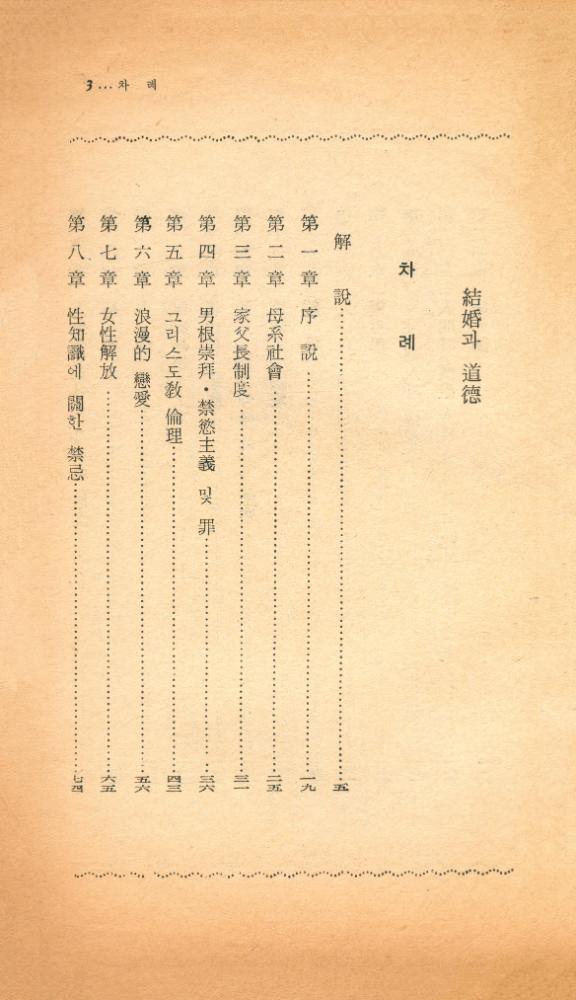 3…차 례
結婚과 道德
차 례
解 說……五
第一章 序 說……一九
第二章 母系社會……二五
第三章 家父長制度……三一
第四章 男根崇拜・禁慾主義 및 罪……三六
第五章 그리스도敎 倫理……四三
第六章 浪漫的 戀愛……五六
第七章 女性解放……六五
第八章 性知識에 關한 禁忌……七四